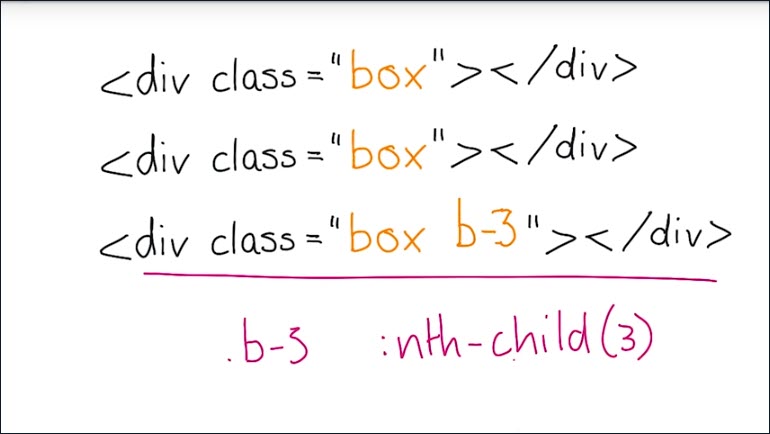 <div class="box"></div>
<div class="box"></div>
<div class="box b-3"></div>
.b-3 :nth-child(3)